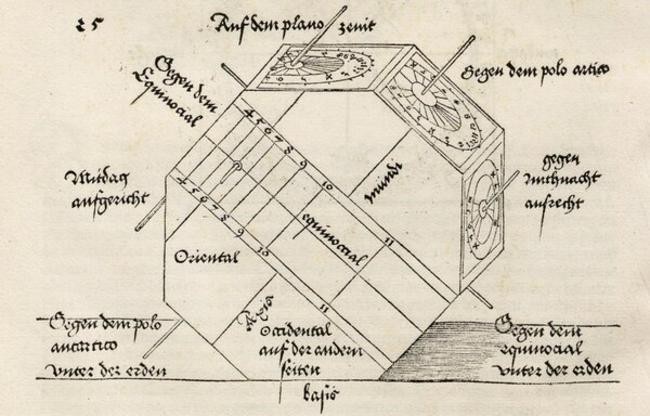 25
Auf dem plano zenit
Gegen dem
Equinocial
Gegen dem polo artico
Mitdag
aufgericht
gegen
mithnacht
aufrecht
4 5 6 7 8 9 10 11
mundi
equinoccial
4 5 6 7 8 9 10 11
Oriental
Axis
Occidental
auf der andern
seiten
Gegen dem polo
antartico
vnter der erden
Gegen dem
equinocial
vnter der erden
basis